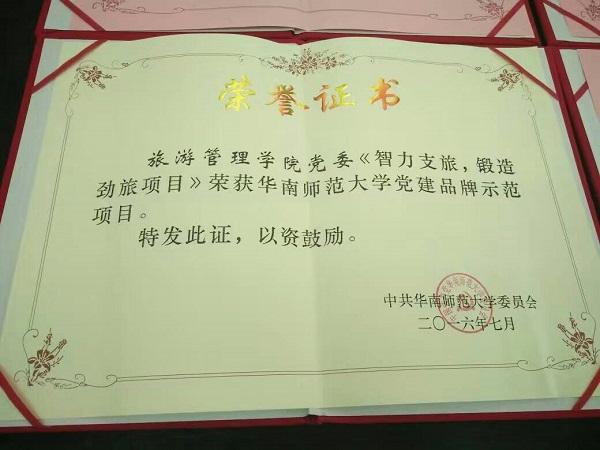 荣誉证书
旅游管理学院党委《智力支旅，锻造
劲旅项目》荣获华南师范大学党建品牌示范
项目。
特发此证，以资鼓励。
中共华南师范大学委员会
二〇一六年七月